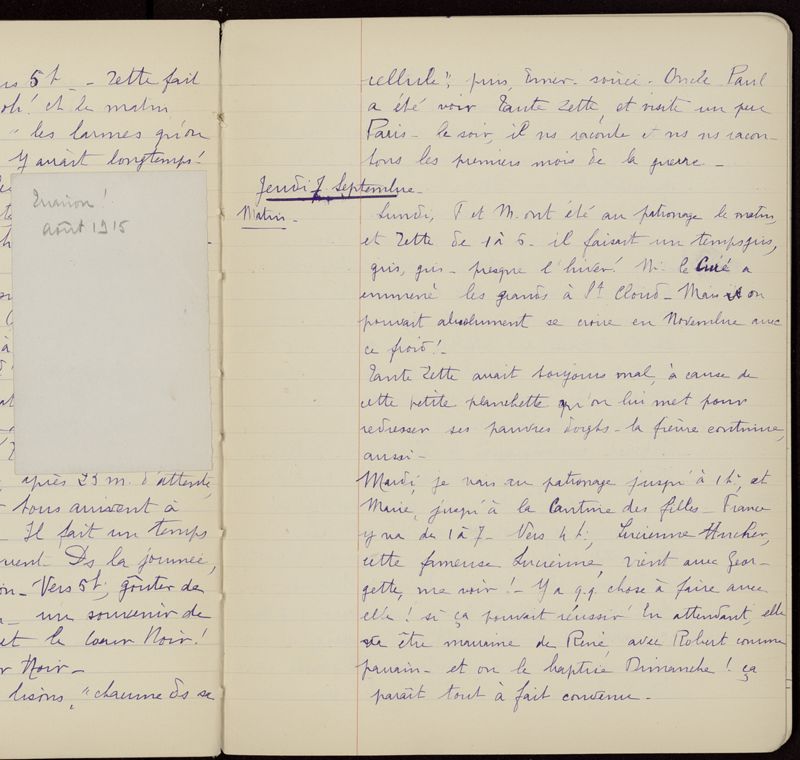 5h - Zette fait
oh! et le matin
" les larmes qu'on
y avait longtemps!
août 1915
après 25 m. d'attente,
tous arrivent à
Il fait un temps
Ds la journée,
Vers 5h, goûter de
un souvenir de
et le Coeur Noir!
Noir -
lisons, "chacune ds sa
cellule"; puis, soirée. Oncle Paul
a été voir Tante Zette, et visite un peu
Paris - le soir, il ns raconte et ns ns racon-
tons les premiers mois de la guerre -
Jeudi 7 Septembre -
Matin -
Lundi, F et M. ont été au patronage le matin,
et Zette de 1 à 6 - il faisait un temps gris,
gris, gris - presque l'hiver! Mr le Curé a
emmené les grands à St Cloud - Mais on
pouvait absolument se croire en Novembre avec
ce froid! -
Tante Zette avait toujours mal, à cause de
cette petite planchette qu'on lui met pour
redresser ses pauvres doigts - la fièvre continue,
aussi -
Mardi, je vais au patronage jusqu'à 1h, et
Marie, jusqu'à la Cantine des filles - France
y va de 1 à 7 - Vers 4h, Lucienne
cette fameuse Lucienne, vient avec Geor-
gette, me voir! - Y a q.q. chose à faire avec
elle! si ça pouvait réussir! En attendant, elle
va être marraine de René, avec Robert comme
parrain - et on le baptise Dimanche! ça
paraît tout à fait convenu -